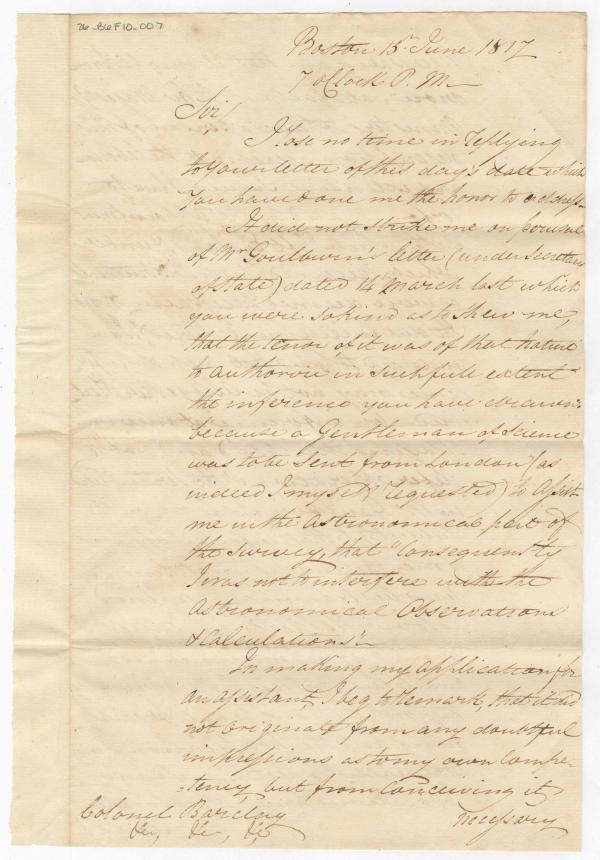 26_B6F10_007
Boston 15th June 1817
7 oClock P. M
Sir,
I lose no time in replying
to your letter of this day's date which
you have done me the honor to address
It did not strike me on perusal
of Mr Goulburn's letter (under Secretary
of State) dated 14th March last which
you were so kind as to shew me,
that the tenor of it was of that nature
to authorise in such full extent
the inference you have drawn
because a Gentleman of Science
was to be sent from London (as
indeed I myself requested) to assist
me in the astronomical part of
the survey, that "Consequently
I was not to interfere with the
astronomical Observations
& Calculations"
In making my application for
an assistant, I beg to remark, that it did
not originate from any doubtful
impressions as to my own compe-
tency, but from conceiving it
Colonel Barclay
necessary
&c, &c, &c,